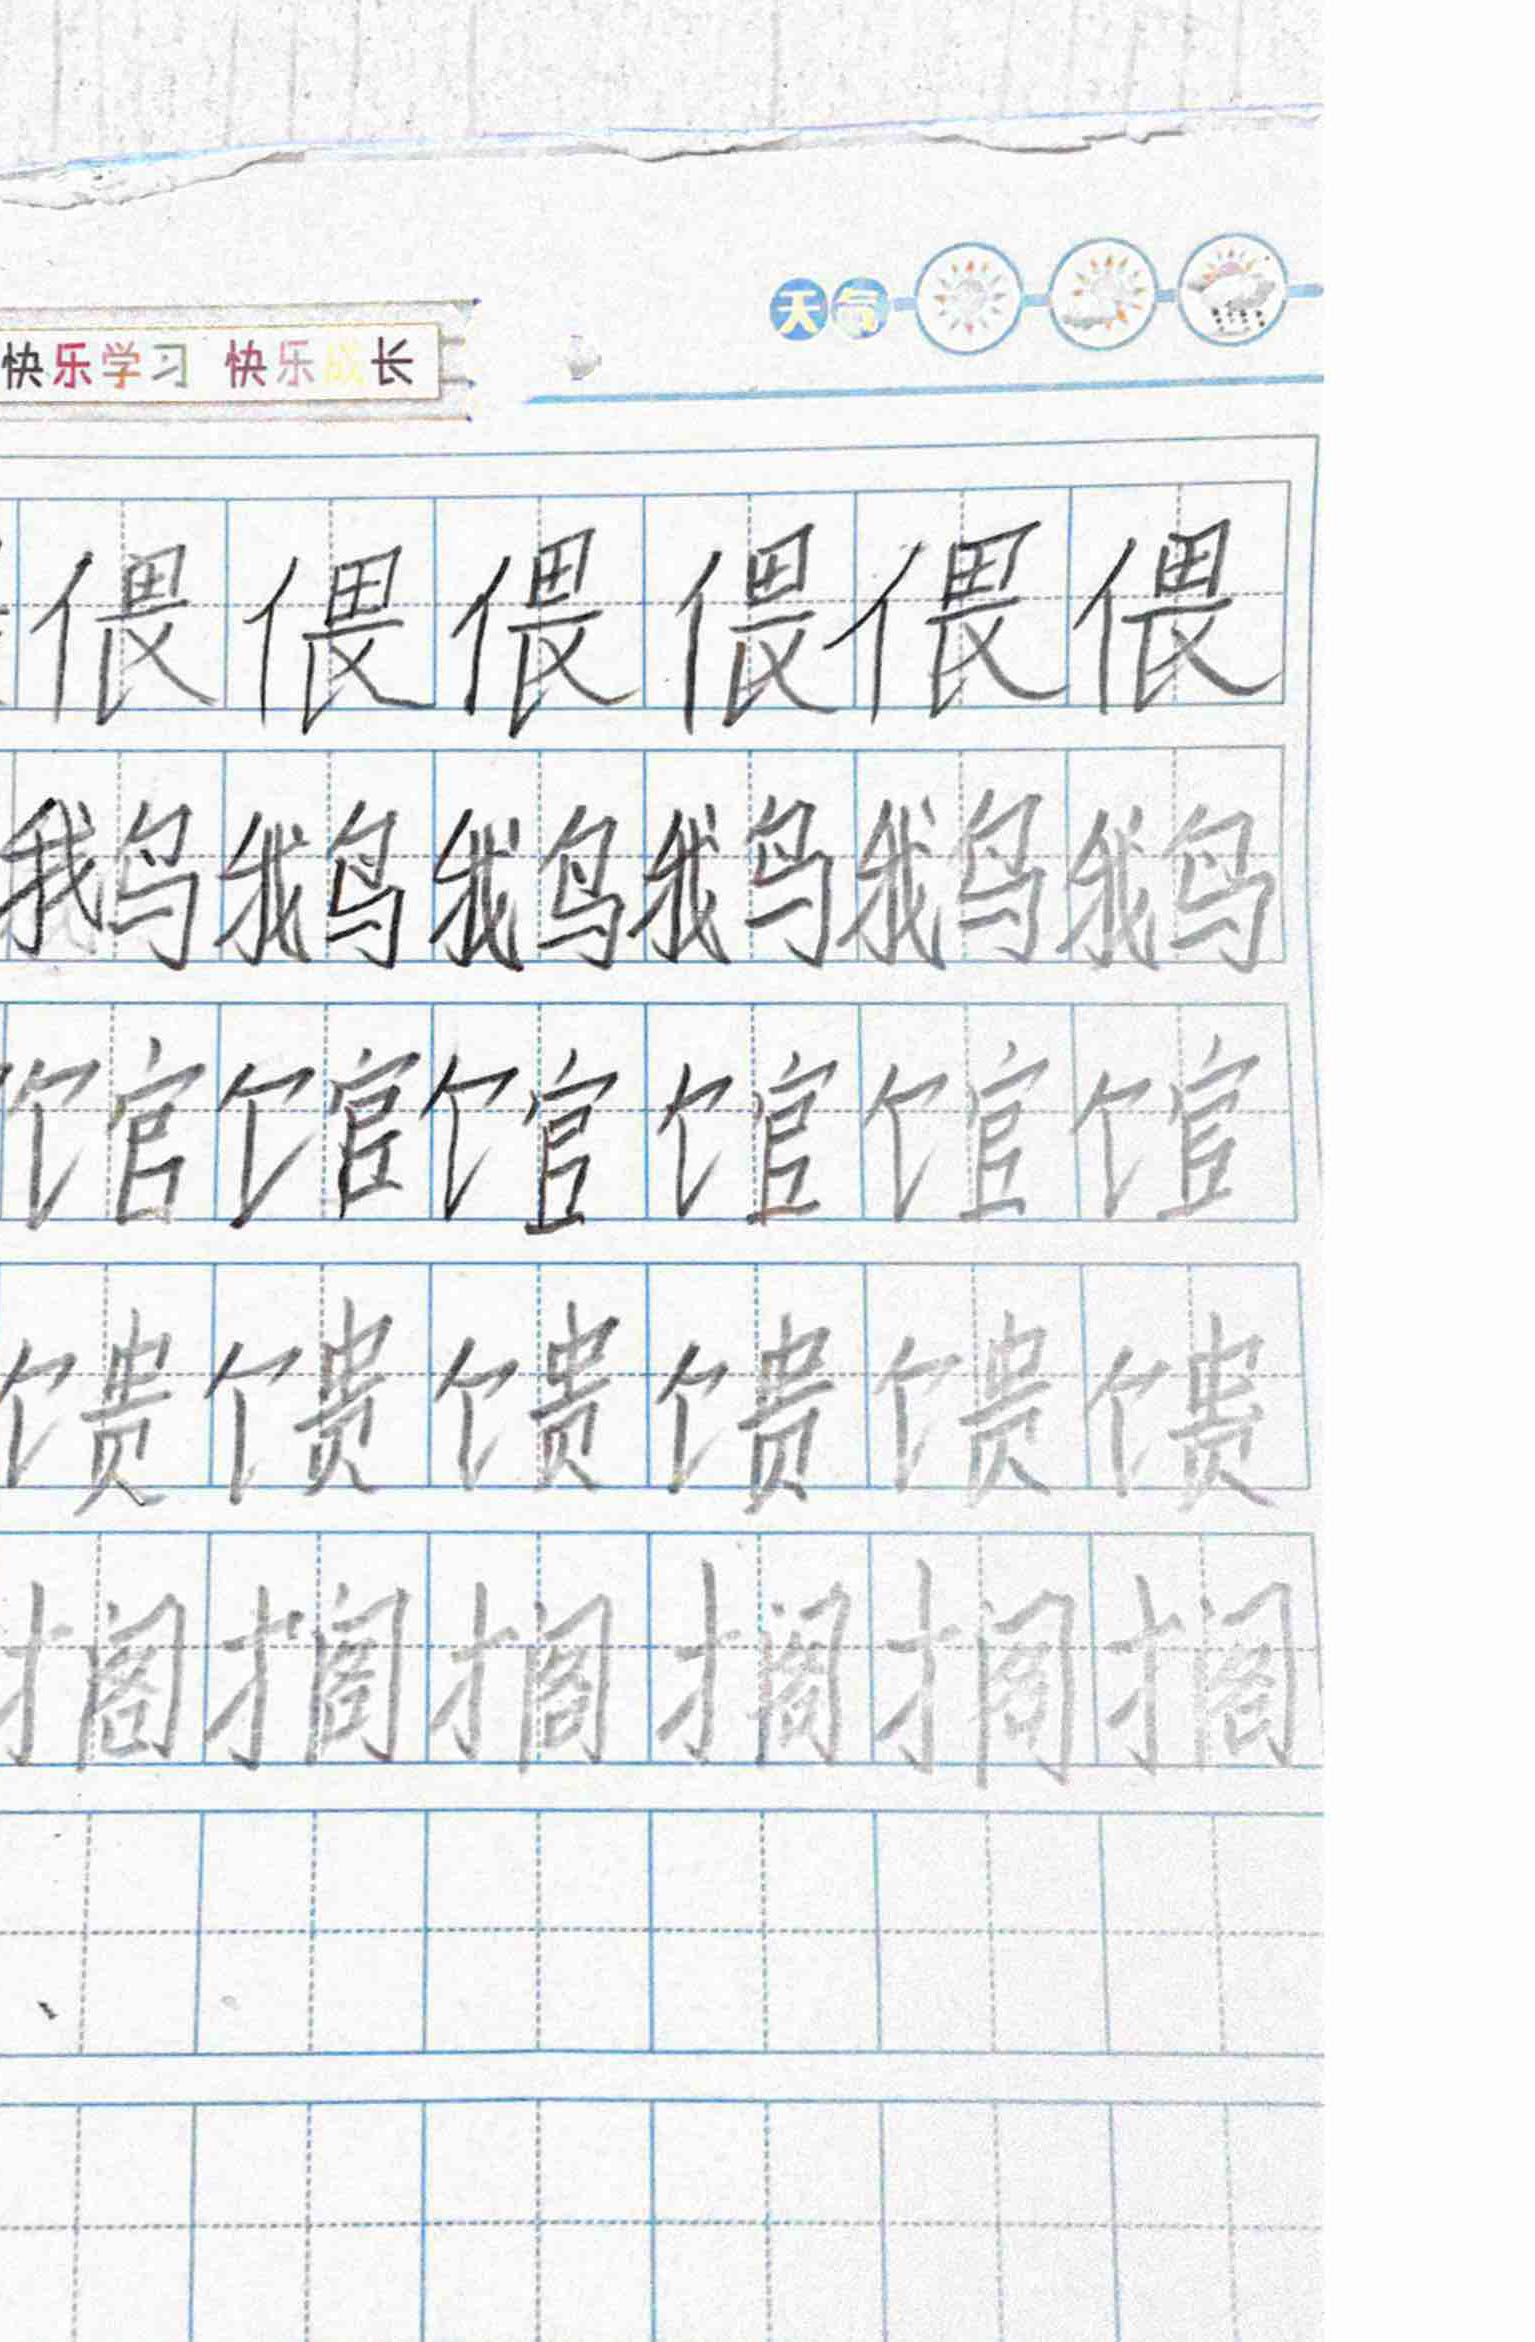 天气
快乐学习 快乐成长
偎 偎 偎 偎 偎 偎
鹅 鹅 鹅 鹅 鹅 鹅
馆 馆 馆 馆 馆 馆
馈 馈 馈 馈 馈 馈
搁 搁 搁 搁 搁 搁